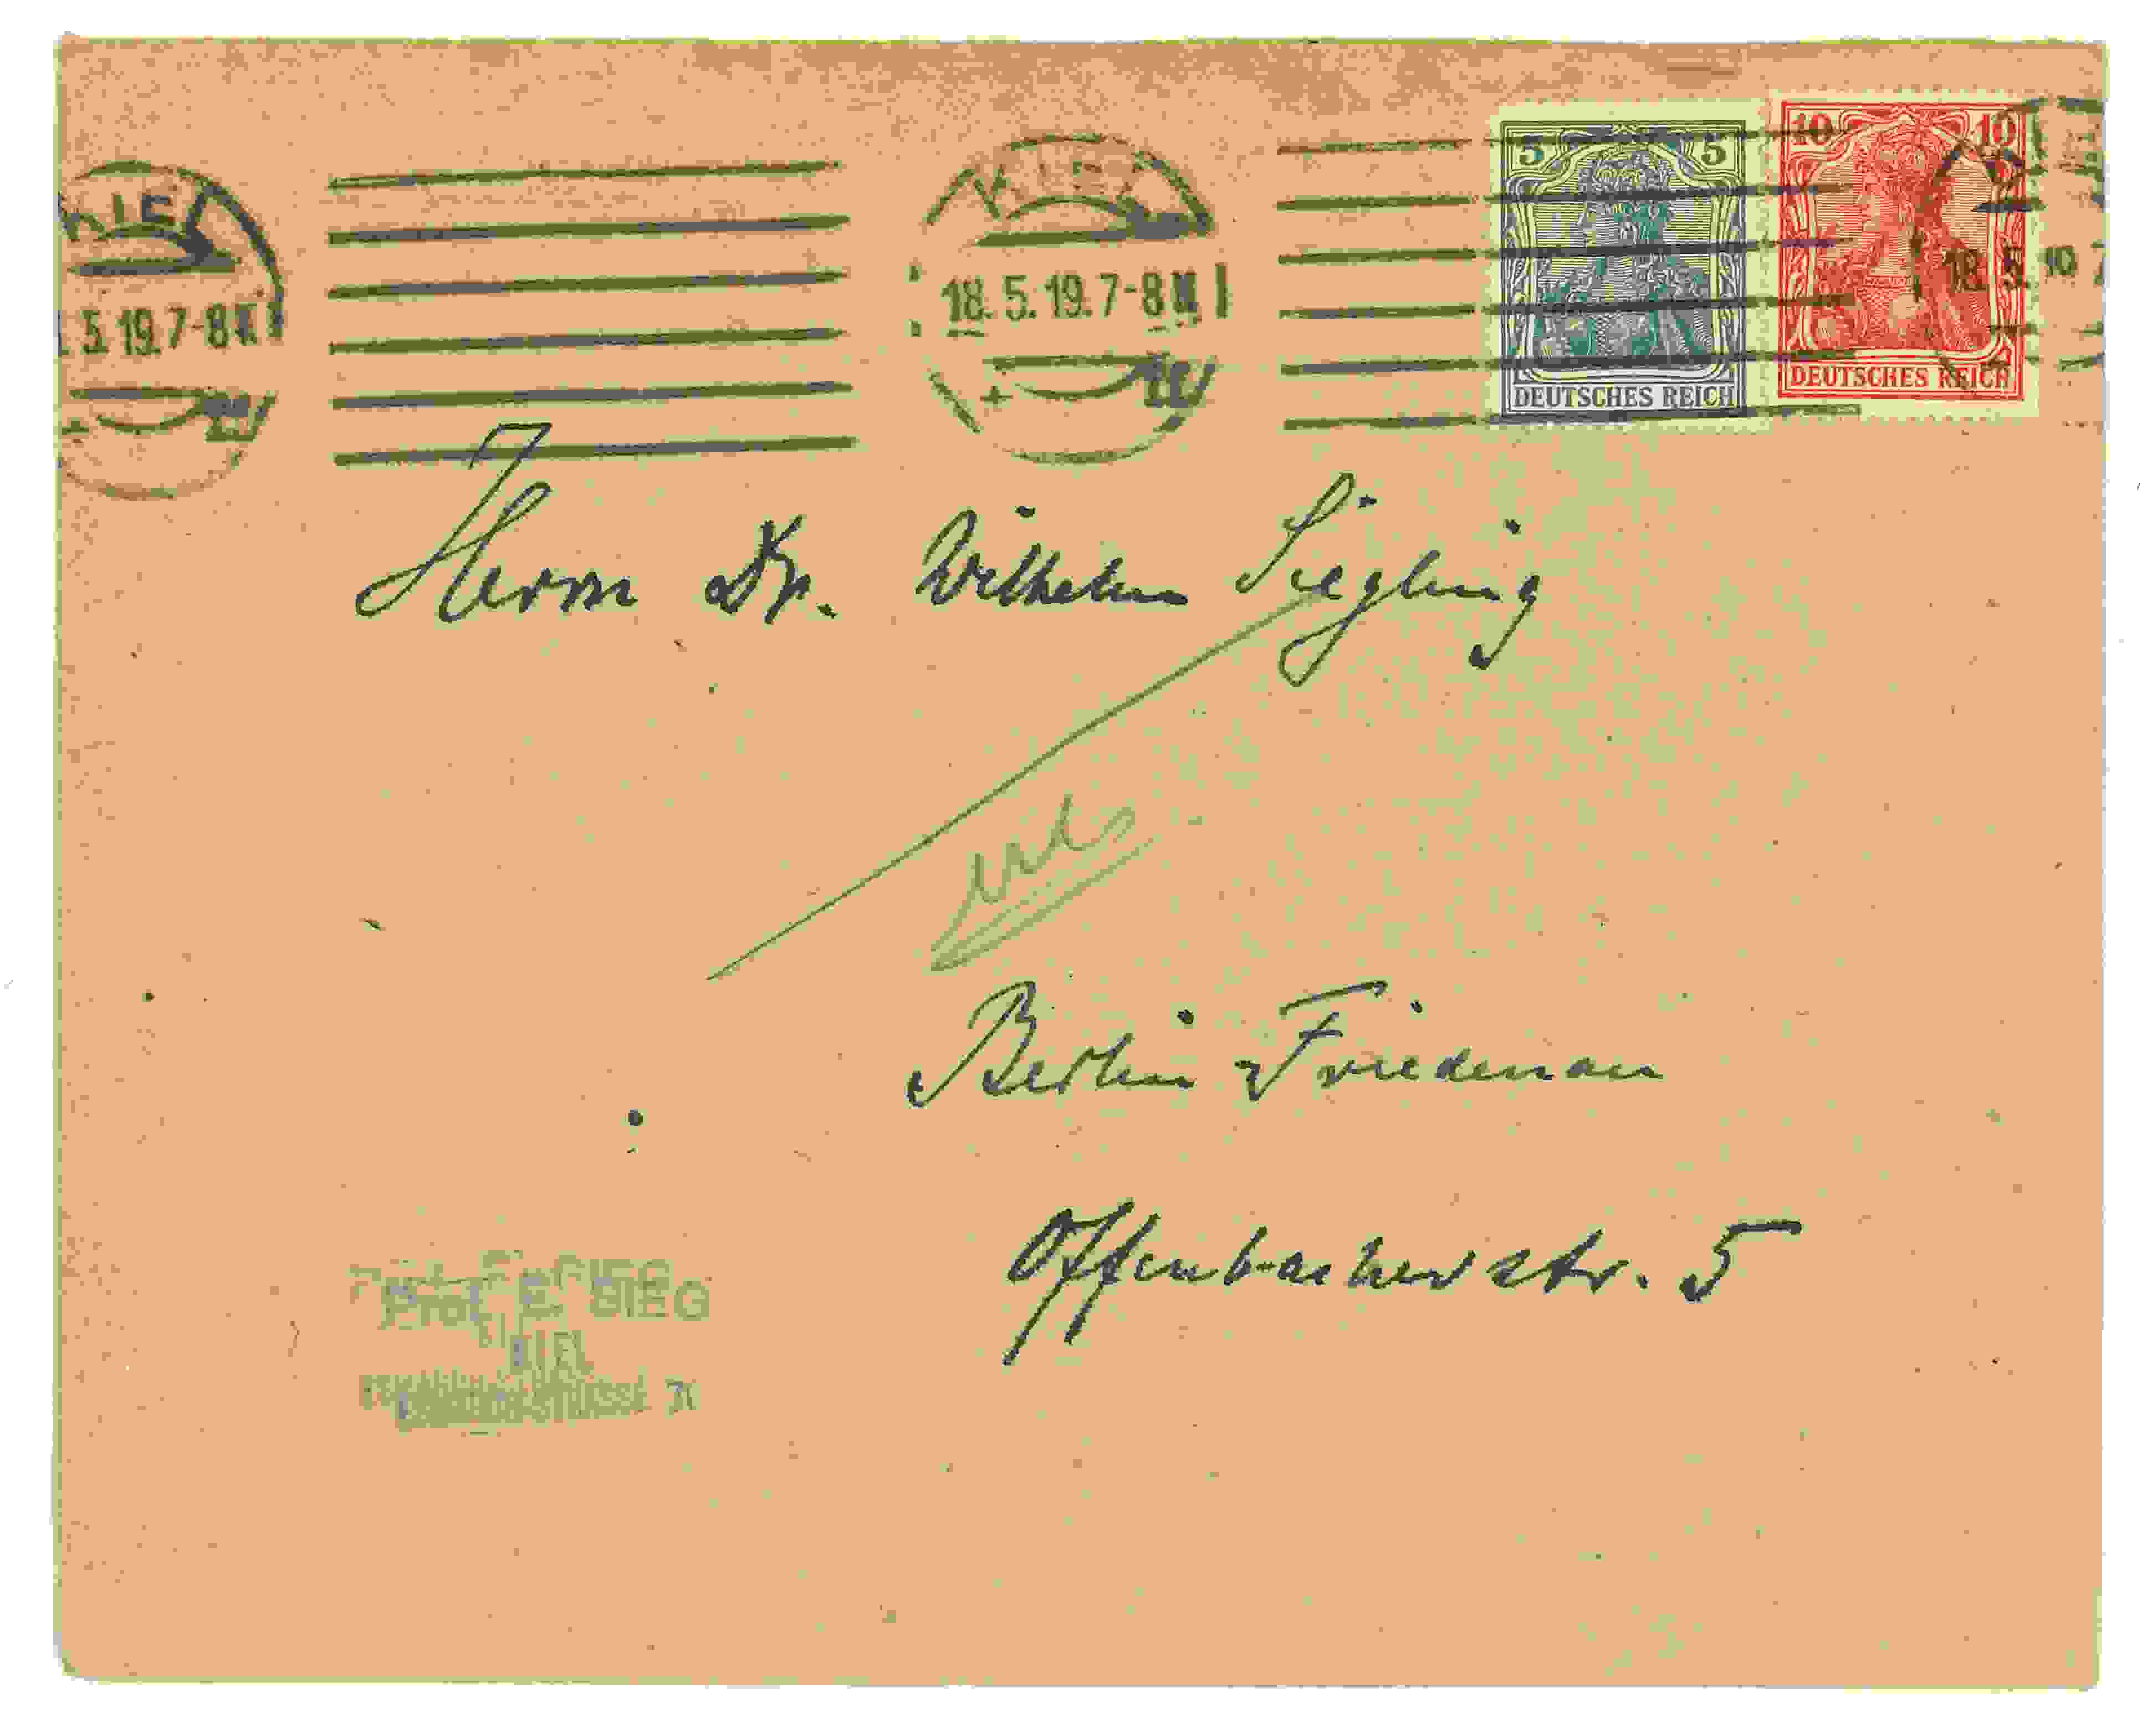 KIEL
5. 19. 7-8 N
KIEL
18. 5. 19. 7-8 N
5 5
DEUTSCHES REICH
10 10
DEUTSCHES REICH
18. 5.
Herrn Dr. Wilhelm Siegling
Berlin-Friedenau
Offenbacherstr. 5
Prof. E. SIEG
KIEL